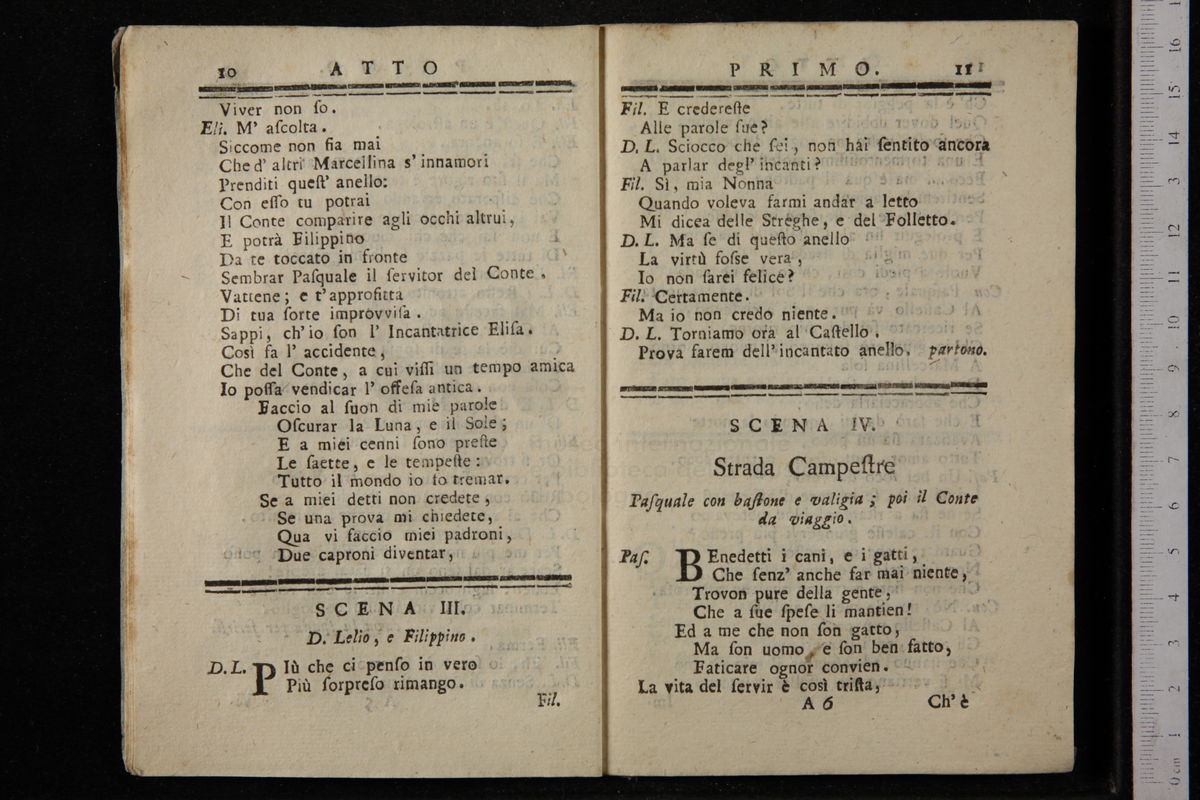 10 ATTO
Viver non ſo.
Eli. M' aſcolta.
Siccome non ſia mai
Che d' altri Marcellina s' innamori
Prenditi queſt' anello:
Con eſſo tu potrai
Il Conte comparire agli occhi altrui,
E potrà Filippino
Da te toccato in fronte
Sembrar Paſquale il ſervitor del Conte.
Vattene; e t' approfitta
Di tua ſorte improvviſa.
Sappi, ch' io ſon l' Incantatrice Eliſa.
Così fa l' accidente,
Che del Conte, a cui viſſi un tempo amica
Io poſſa vendicar l' offeſa antica.
Faccio al ſuon di mie parole
Oſcurar la Luna, e il Sole;
E a miei cenni ſono preſte
Le ſaette, e le tempeſte:
Tutto il mondo io fo tremar.
Se a miei detti non credete,
Se una prova mi chiedete,
Qua vi faccio miei padroni,
Due caproni diventar,
SCENA III.
D. Lelio, e Filippino.
D. L. PIù che ci penſo in vero
Più ſorpreſo rimango.
Fil.
PRIMO. 11
Fil. E credereſte
Alle parole ſue?
D. L. Sciocco che ſei, non hai ſentito ancora
A parlar degl' incanti?
Fil. Sì, mia Nonna
Quando voleva farmi andar a letto
Mi dicea delle Streghe, e del Folletto.
D. L. Ma ſe di queſto anello
La virtù foſse vera,
Io non ſarei felice?
Fil. Certamente.
Ma io non credo niente.
D. L. Torniamo ora al Caſtello.
Prova farem dell' incantato anello. partono.
SCENA IV.
Strada Campeſtre
Paſquale con baſtone e valigia; poi il Conte
da viaggio.
Paſ. BEnedetti i cani, e i gatti,
Che ſenz' anche far mai niente,
Trovon pure della gente,
Che a ſue ſpeſe li mantien!
Ed a me che non ſon gatto,
Ma ſon uomo e ſon ben fatto,
Faticare ognor convien.
La vita del ſervir è così triſta,
A 6 Ch' è